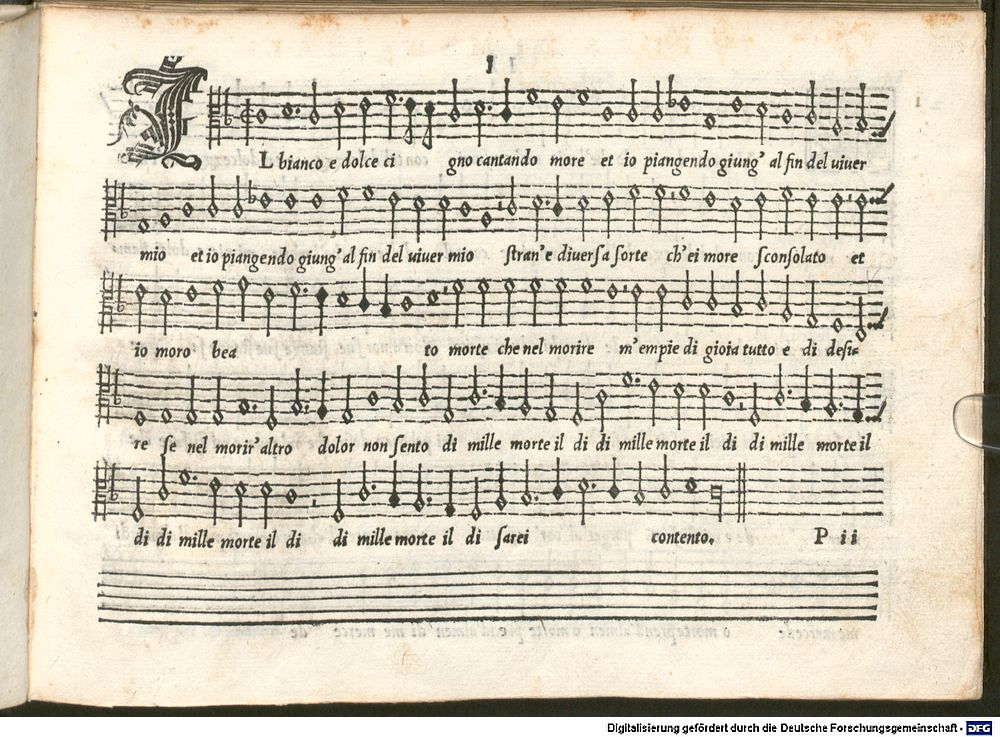 11
IL bianco e dolce ci gno cantando more et io piangendo giung' al fin del uiuer
mio et io piangendo giung' al fin del uiuer mio stran' e diuersa sorte ch' ei more sconsolato et
io moro bea to morte che nel morire m' empie di gioia tutto e di desi=
re se nel morir' altro dolor non sento di mille morte il di di mille morte il di di mille morte il
di di mille morte il di di mille morte il di sarei contento. P ii
Digitalisierung gefördert durch die Deutsche Forschungsgemeinschaft - DFG